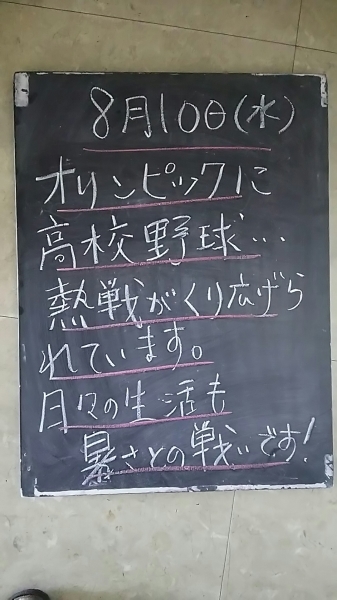 8月10日(水)
オリンピックに
高校野球…
熱戦がくり広げら
れています。
日々の生活も
暑さとの戦いです!